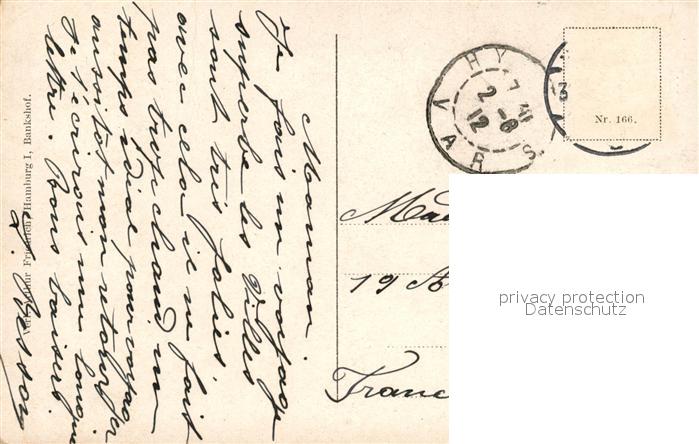 Maman.
Je fais un voyage
superbe les Villes
sont très jolies.
avec cela il ne fait
pas trop chaud un
temps idéal pour voyager
aussitôt mon retour
je t'écrirais une longue
lettre. Bons baisers
Verlag Friedrich Hamburg I, Bankshof.
2 - 8
12
3
Nr. 166.
19 A
Franc
privacy protection
Datenschutz